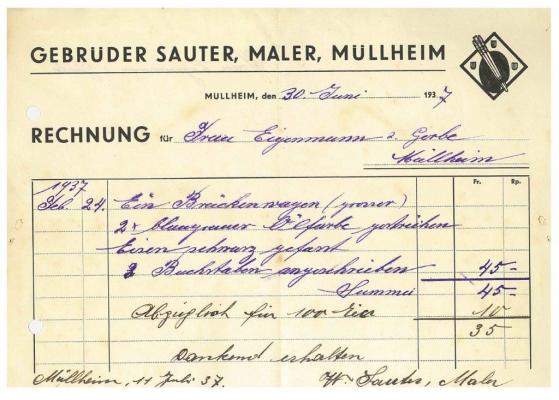 GEBRÜDER SAUTER, MALER, MÜLLHEIM
MÜLLHEIM, den 30. Juni 1937
RECHNUNG für Frau Eigenmann z. Gerbe
Müllheim
1937 Fr. Rp.
Feb. 24. Ein Brückenwagen (grosser)
2x blaugrauer Ölfarbe gestrichen
Eisen schwarz gefasst
2 Buchstaben angeschrieben 45 -
Summa 45 -
Abzüglich für 100 Eier 10
35
Dankend erhalten
Müllheim, 11 Juli 37. W. Sauter, Maler